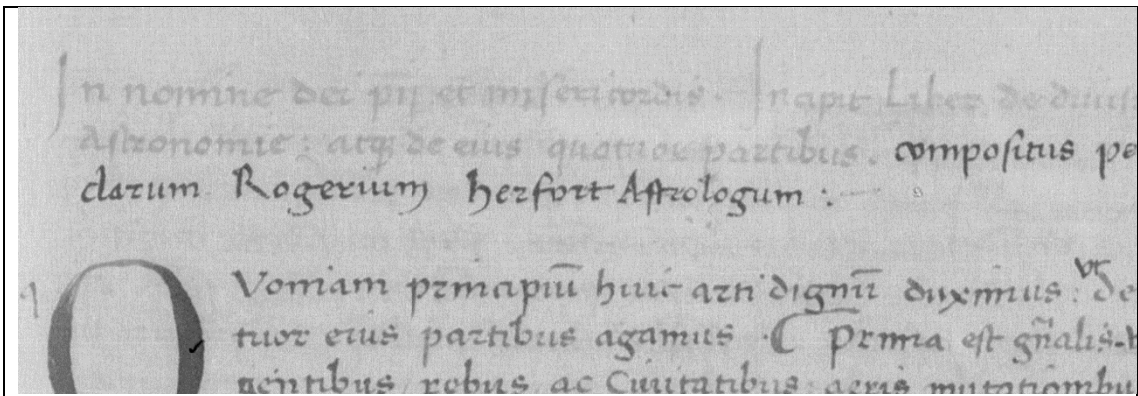 In nomine dei pij et misericordis. Incipit Liber de diuis
Astronomie: atq; de eius quatuor partibus. compositus pe
clarum Rogerium herfort Astrologum:
QVoniam principiū huic arti dignū duximus: vt de
tuor eius partibus agamus. Prima est gn̄alis.
gentibus, rebus ac Ciuitatibus: aeris mutationibu